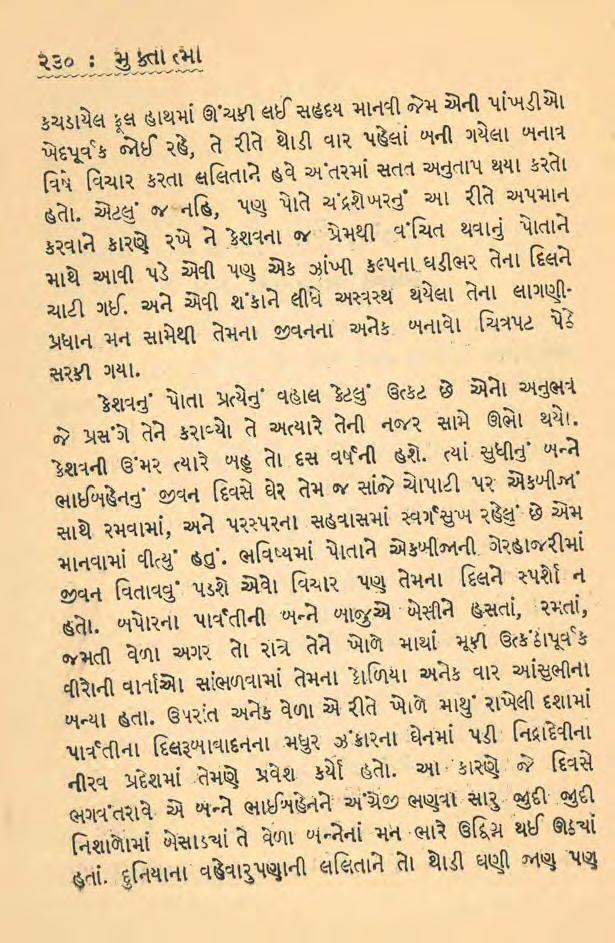 ૨૩૦ : મુક્તાત્મા
કચડાયેલ ફૂલ હાથમાં ઊંચકી લઈ સહૃદય માનવી જેમ એની પાંખડીઓ
ખેદપૂર્વક જોઈ રહે, તે રીતે થોડી વાર પહેલાં બની ગયેલા બનાવ
વિષે વિચાર કરતા લલિતાને હવે અંતરમાં સતત અનુતાપ થયા કરતો
હતો. એટલું જ નહિ, પણ પોતે ચંદ્રશેખરનું આ રીતે અપમાન
કરવાને કારણે રખે ને કેશવના જ પ્રેમથી વંચિત થવાનું પોતાને
માથે આવી પડે એવી પણ એક ઝાંખી કલ્પના ઘડીભર તેના દિલને
ચાટી ગઈ. અને એવી શંકાને લીધે અસ્વસ્થ થયેલા તેના લાગણી-
પ્રધાન મન સામેથી તેમના જીવનના અનેક બનાવો ચિત્રપટ પેઠે
સરકી ગયા.
કેશવનું પોતા પ્રત્યેનું વહાલ કેટલું ઉત્કટ છે એનો અનુભવ
જે પ્રસંગે તેને કરાવ્યો તે અત્યારે તેની નજર સામે ઊભો થયો.
કેશવની ઉંમર ત્યારે બહુ તો દસ વર્ષની હશે. ત્યાં સુધીનું બન્ને
ભાઈબહેનનું જીવન દિવસે ઘેર તેમ જ સાંજે ચોપાટી પર એકબીજાં
સાથે રમવામાં, અને પરસ્પરના સહવાસમાં સ્વર્ગસુખ રહેલું છે એમ
માનવામાં વીત્યું હતું. ભવિષ્યમાં પોતાને એકબીજાની ગેરહાજરીમાં
જીવન વિતાવવું પડશે એવો વિચાર પણ તેમના દિલને સ્પર્શો ન
હતો. બપોરના પાર્વતીની બન્ને બાજુએ બેસીને હસતાં, રમતાં,
જમતી વેળા અગર તો રાત્રે તેને ખોળે માથાં મૂકી ઉત્કંઠાપૂર્વક
વીરોની વાર્તાઓ સાંભળવામાં તેમના કોળિયા અનેક વાર આંસુભીના
બન્યા હતા. ઉપરાંત અનેક વેળા એ રીતે ખોળે માથું રાખેલી દશામાં
પાર્વતીના દિલરૂબાવાદનના મધુર ઝંકારના ઘેનમાં પડી નિદ્રાદેવીના
નીરવ પ્રદેશમાં તેમણે પ્રવેશ કર્યો હતો. આ કારણે જે દિવસે
ભગવંતરાવે એ બન્ને ભાઈબહેનને અંગ્રેજી ભણવા સારુ જુદી જુદી
નિશાળોમાં બેસાડચાં તે વેળા બન્નેનાં મન ભારે ઉદ્વિગ્ન થઈ ઊઠચાં
હતાં. દુનિયાના વહેવારુપણાની લલિતાને તો થોડી ઘણી જાણ પણ